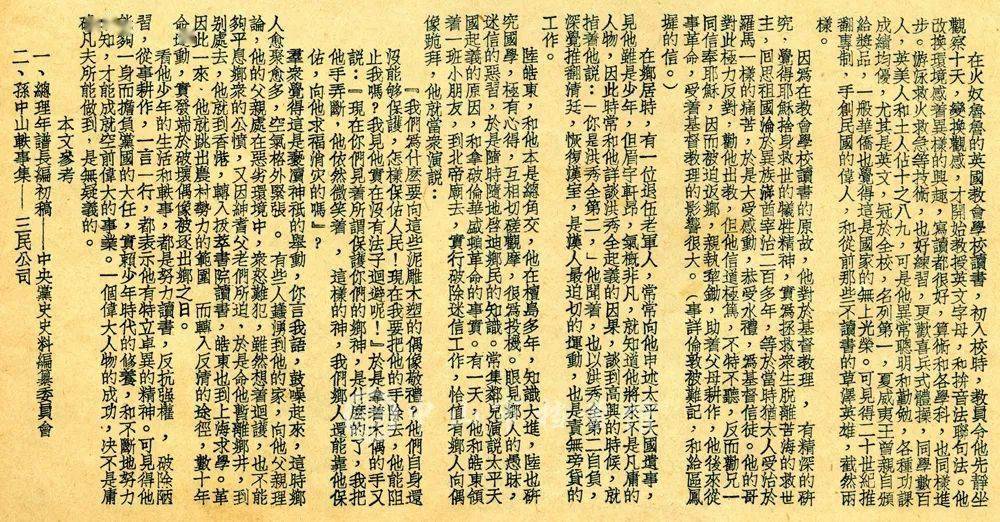 觀察十天，變換觀感，才開始教授英文字母，和拚音法聯句法。他
　在火奴魯魯的教會學校讀書，初入校時，教員令他先靜坐
改換環境感着異樣的興趣，寫讀都很好，算術和各學科，也同樣進
步。游泳救火救急等技術，也好練習，更歡喜兵式體操，同學數百
人，英美人和土人佔十之八九，可是他異常聰明和勤勉，各種功課
成績均優，尤其是英文，冠於全校，名列第一，夏威夷王曾親自頒
給獎品，一般華僑也覺得這是國家的無上光榮。可見得二十世紀推
翻專制，手創民國的偉人，和從前那些不讀書的草澤英雄，截然兩
樣。
　因爲在教會學校讀書的原故，他對於基督教理，有精深的研
究，覺得耶穌捨身救世的犧牲精神，實爲拯救衆生脫離苦海的救世
主，回思祖國淪於異族
主宰治二百多年，等於當時猶太人受治於
羅馬一樣的痛苦，於是大受感動，恭受水禮，爲基督信徒。他的哥
哥對此極力反對，勸他出教，但他信道極篤，不特不聽，反而勸兄一
同信奉耶穌，因而被迫返鄉，親執犂鋤，助着父母耕作，他後來從
事革命，受着基督教理的影響很大。（事詳倫敦被難記，和給區鳳
墀信）
　在鄉居時，有一位退伍老軍人，常常向他申述太平天國遺事，
見他雖是少年，但眉宇軒昂，氣概非凡，就知道他將來不是凡庸的
人物，因此時常和他談洪秀全起義的因果，談到高興的時候，就
指着他說：「你是洪秀全第二，」他聞着，也以洪秀全第二自負，
深覺推翻清廷，恢復漢室，是漢人最迫切的運動，也是責無旁貸的
工作。
　陸皓東，和他本是總角交，他在檀島多年，知識大進，陸也研
究國學，極有心得，互相切磋觀摩，很爲投機。眼見鄉人的愚昧，
迷信的惡習，於是隨時隨地啓迪鄉民的知識。常集鄰兒演說太平天
國起義的原因，和拿破倫華盛頓革命的事實。有一天，他和皓東領
着一班小朋友，到北帝廟去，實行破除迷信工作，恰值有鄉人向偶
像跪拜，他就當衆演說：
　「我們爲什麼要向這些泥雕木塑的偶像敬禮？他們自身還
沒能够保護，怎樣保佑人民！現在我要把他的手除去，他能阻
止我嗎？我見他實在沒有法子迴避呢！」於是扯着木偶的手又
說：「現在你們見着所謂保護你們的鄉的神，是什麼的了，我把
他手弄斷，他依然微笑着，這樣的神，我們鄉人還能靠他保
佑，向他求福消灾的嗎』？
　羣衆覺得這是褻瀆神祇的舉動，你言我語，鼓噪起來，這時鄉
人愈聚愈多，空氣格外緊張。有些人蟻湧到他的家，向他父親理
論，他的父親處在惡劣環境中，衆怒難犯，雖然想着迴護，也不能
够平息鄉衆的公憤，又因紳耆父老們所迫，於是命他暫離鄉井，到
別處去，他就到香港，轉入拔萃書院讀書，皓東也到上海求學。革
因此一來，他就跳出農村勢力的範圍　而轉入反清的途徑，數十年
命運動，實發端於破壞偶像被逐出鄉之日。
　看他少年的生活和軼事，都是努力讀書，反抗強權，　破除陋
習，從事耕作，一言一行，都表示他有特立卓異的精神。可見得他
能夠一身而擔負黨國的大任，實賴少年時代的修養，和不斷地努力
求知，才能成就空前偉大的事業。一個偉大人物的成功，决不是庸
碌凡夫所能做到，是無疑義的。
　　本文參考
一、總理年譜長編初稿——中央黨史史料編纂委員會
二、孫中山軼事集——三民公司